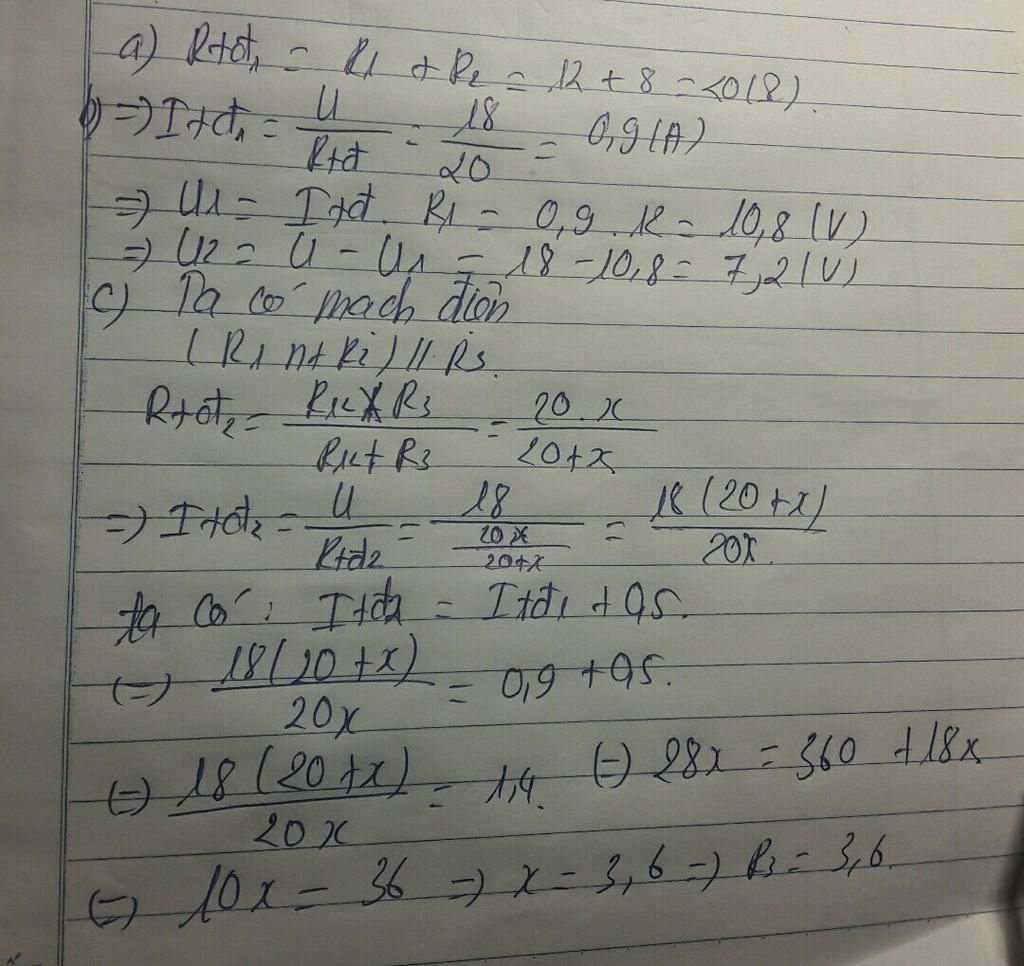 a) Rtđ₁ = R1 + R2 = 12 + 8 = 20(Ω).
b) => Itđ₁ = U/Rtđ = 18/20 = 0,9(A)
=> U1 = Itđ. R1 = 0,9 . 12 = 10,8 (V)
=> U2 = U - U1 = 18 - 10,8 = 7,2(V)
c) Ta có mạch điện
(R1 nt R2) // R3.
Rtđ₂ = R12 X R3/R12 + R3 = 20. x/20 + x
=> Itđ₂ = U/Rtđ2 = 18/(20x/20+x) = 18 (20 + x)/20x.
ta có : Itđ2 = Itđ₁ + 0,5.
(=) 18(20 + x)/20x = 0,9 + 0,5.
(=) 18 (20 + x)/20x = 1,4. (=) 28x = 360 + 18x
(=) 10x = 36 => x = 3,6 => R3 = 3,6.